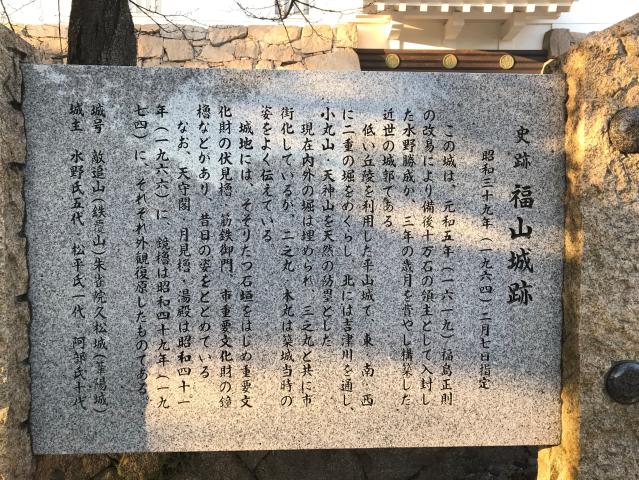 史跡 福山城跡
昭和三十九年(一九六四)二月七日指定
この城は、元和五年(一六一九)福島正則
の改易により備後十万石の領主として入封し
た水野勝成が、三年の歳月を費やし構築した
近世の城郭である
低い丘陵を利用した平山城で、東、南、西
に二重の堀をめぐらし、北には吉津川を通し、
小丸山・天神山を天然の防塁とした
現在内外の堀は埋められ、三之丸と共に市
街化しているが、二之丸、本丸は築城当時の
姿をよく伝えている
城地には、そそりたつ石垣をはじめ重要文
化財の伏見櫓、筋鉄御門、市重要文化財の鐘
櫓などがあり、昔日の姿をとどめている
なお、天守閣、月見櫓、湯殿は昭和四十一
年(一九六六)に、鏡櫓は昭和四十九年(一九
七四)に、それぞれ外観復原したものである
城号 敵追山(鉄覆山)朱雀院久松城(葦陽城)
城主 水野氏五代 松平氏一代 阿部氏十代